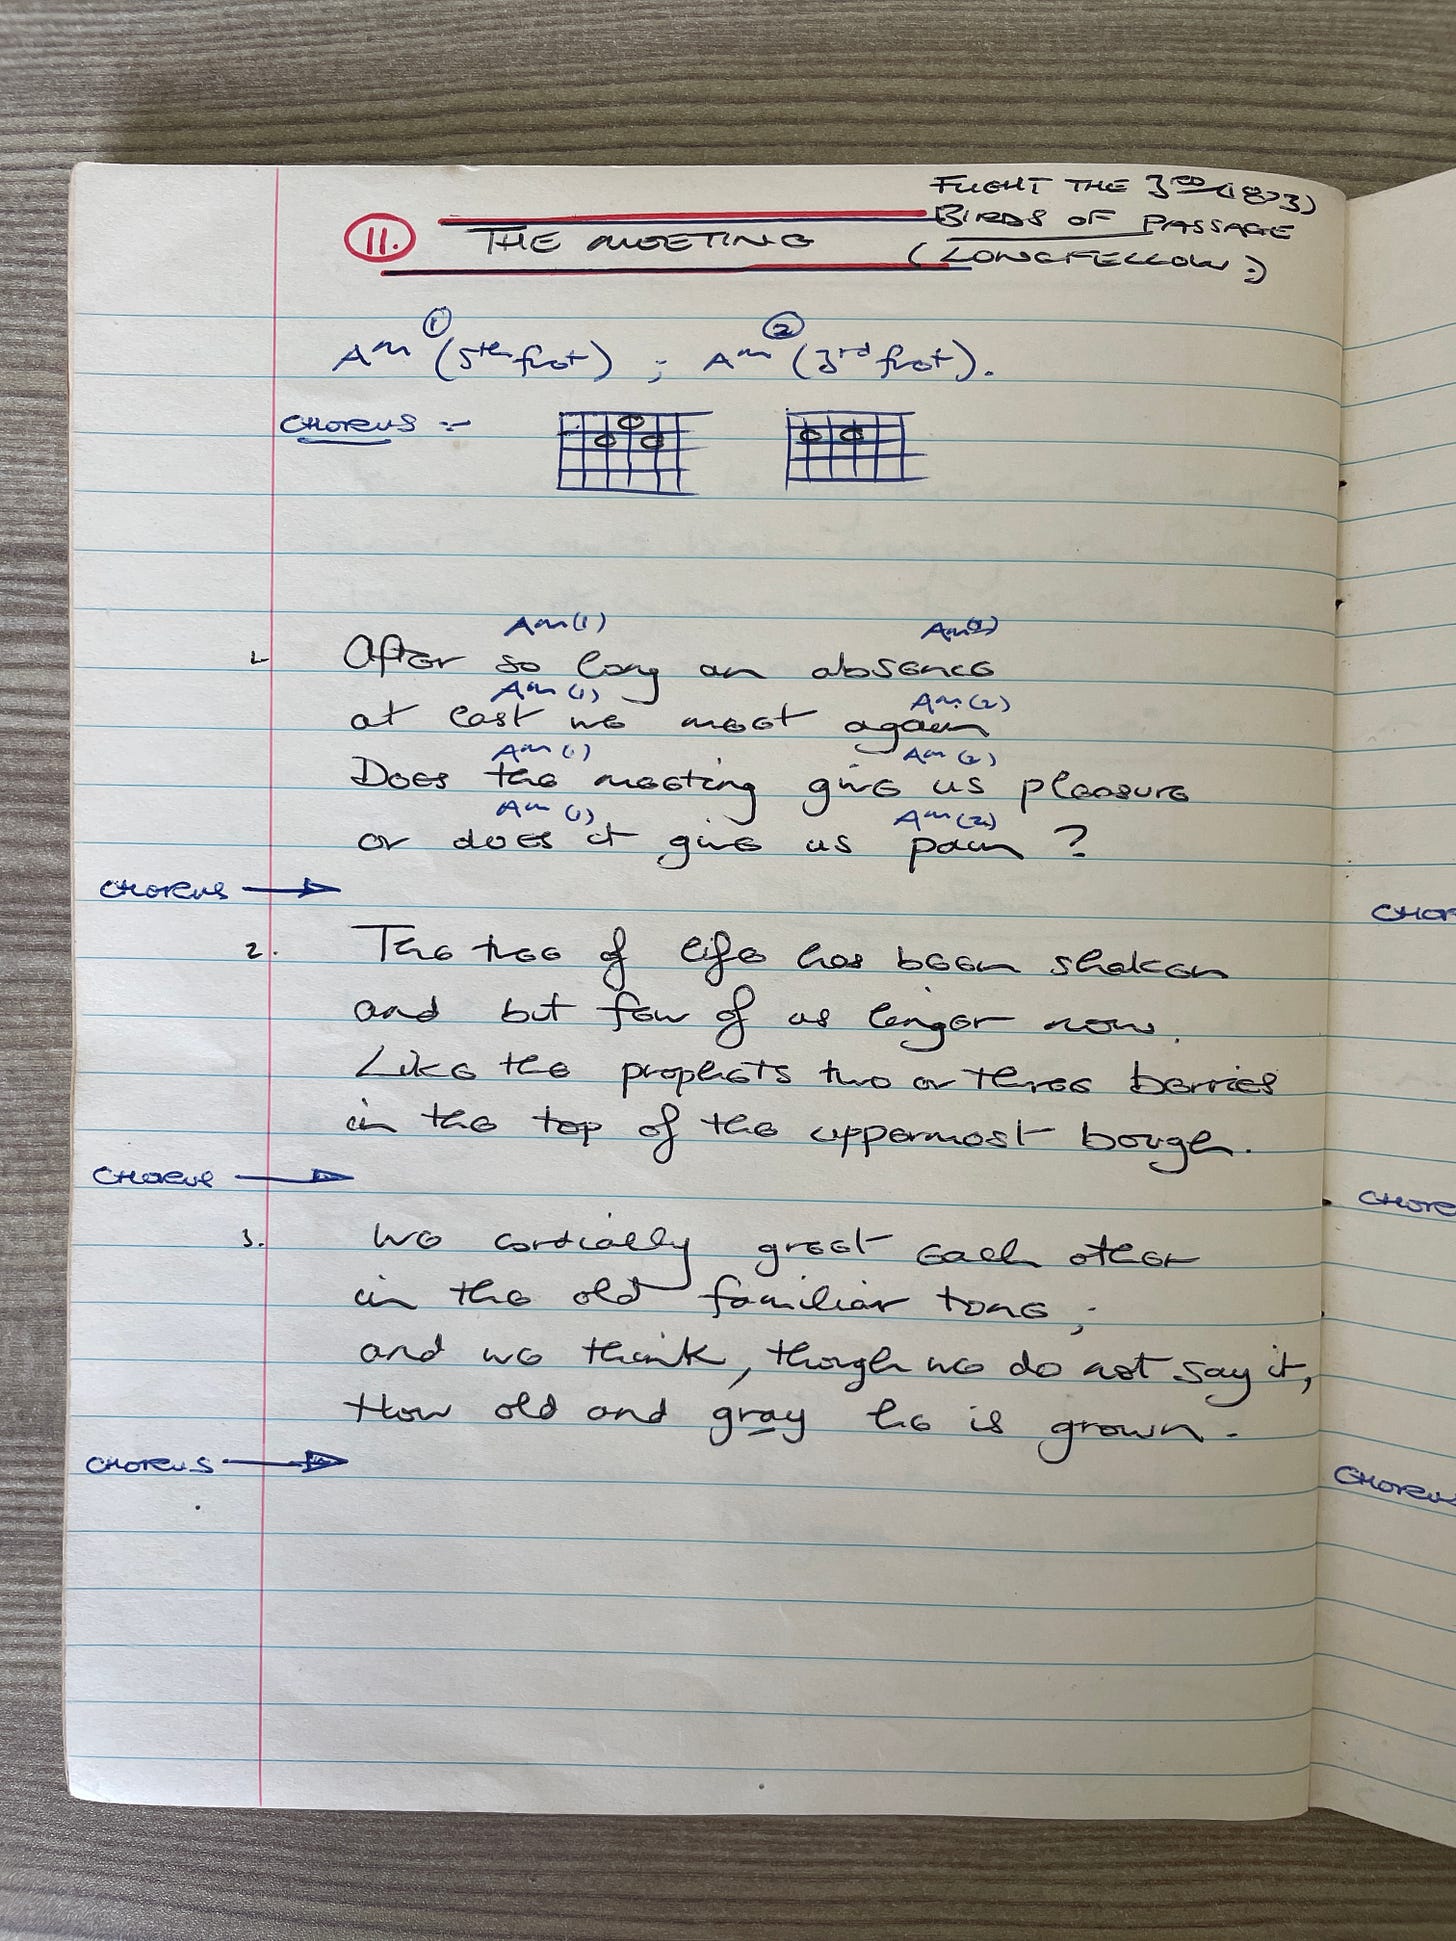 FLIGHT THE 3RD (1873)
BIRDS OF PASSAGE
(LONGFELLOW:)
11. THE MEETING
① ②
Am (5th fret) ; Am (3rd fret).
CHORUS :-
Am(1) Am(2)
1. After so long an absence
Am(1) Am(2)
at last we meet again
Am(1) Am(2)
Does the meeting give us pleasure
Am(1) Am(2)
or does it give us pain ?
CHORUS
2. The tree of life has been shaken
and but few of us linger now.
Like the prophets two or three berries
in the top of the uppermost bough.
CHORUS
3. We cordially greet each other
in the old familiar tone;
and we think, though we do not say it,
How old and gray he is grown.
CHORUS
CHOR
CHORE
CHORU